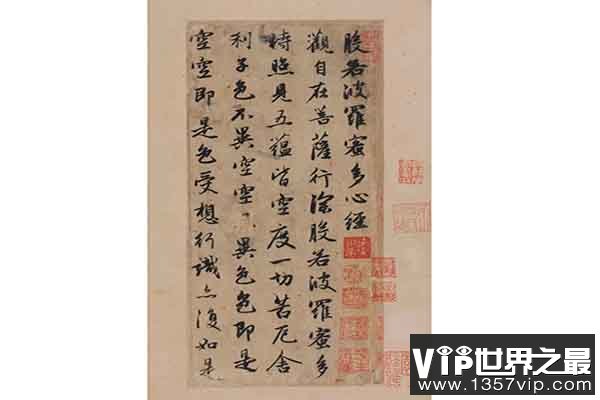 般若波羅蜜多心經
觀自在菩薩行深般若波羅蜜多
時照見五蘊皆空度一切苦厄舍
利子色不異空空不異色色即是
空空即是色受想行識亦復如是
VIP世界之最
www.1357vip.com